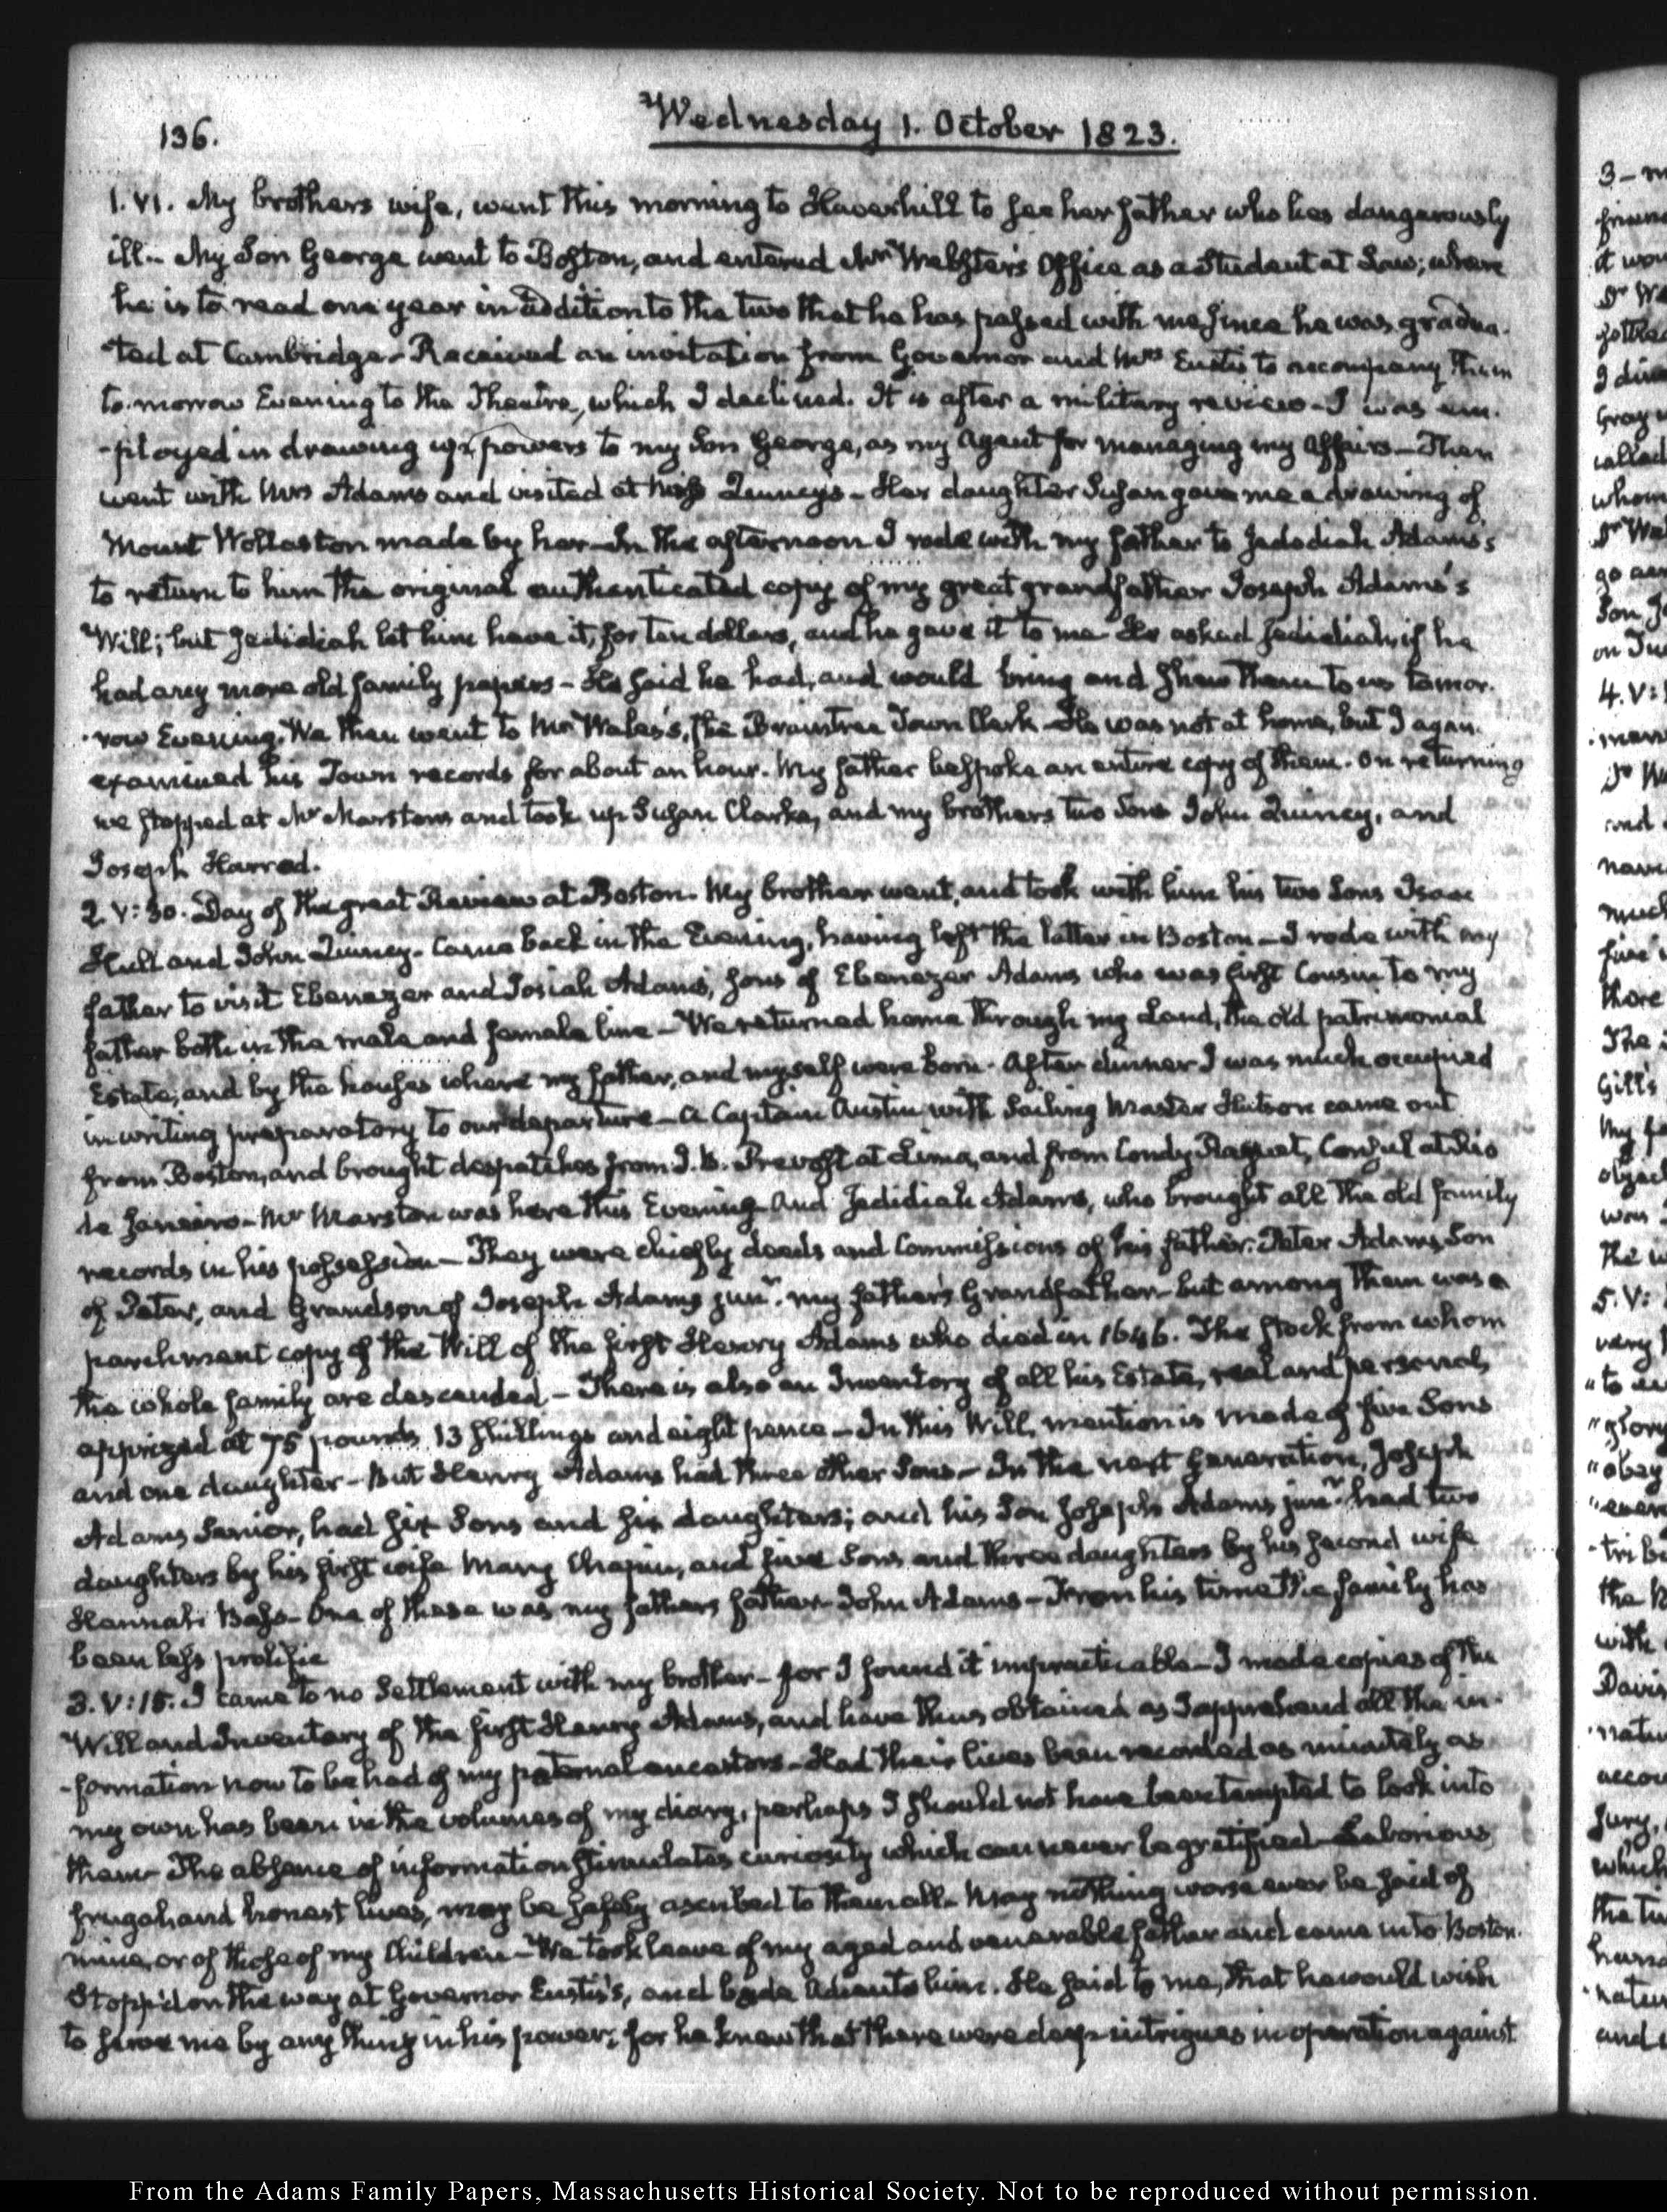 136.
Wednesday 1. October 1823.
1. VI. My brothers wife, went this morning to Haverhill to see her father who lies dangerously
ill.- My Son George went to Boston, and entered Mr Webster's Office as a Student at Law; where
he is to read one year in addition to the two that he has passed with me since he was gradua-
-ted at Cambridge- Received an invitation from Governor and Mrs Eustis to accompany them
to-morrow Evening to the Theatre, which I declined. It is after a military review- I was em-
-ployed in drawing up powers to my Son George, as my Agent for managing my Affairs- Then
went with Mrs Adams and visited at Quincys- Her daughter Susan gave me a drawing of
Mount Wollaston made by her- In the afternoon I rode with my father to Jedediah Adams's
to return to him the original authenticated copy of my great grandfather Joseph Adams's
Will; but Jedidiah let him have it, for ten dollars, and he gave it to me- He asked Jedidiah, if he
had any more old family papers- He said he had, and would bring and shew them to us tomor-
-row Evening. We then went to Mr Wales's, the Braintree Town Clerk- He was not at home, but I again
examined his Town records for about an hour. My father bespoke an entire copy of them. On returning
we stopped at Mr Marstons and took up Susan Clarke, and my brothers two Sons John Quincy, and
Joseph Harrod.
2. V:30. Day of the great Review at Boston. My brother went, and took with him his two Sons Isaac
Hull and John Quincy. Came back in the Evening, having left the latter in Boston- I rode with my
father to visit Ebenezer and Josiah Adams, Sons of Ebenezer Adams who was first Cousin to my
father both in the male and female line- We returned home through my Land, the old patrimonial
Estate; and by the houses where my father, and myself were born. After dinner I was much occupied
in writing preparatory to our departure- A Captain Austin with Sailing Master Hutson came out
from Boston, and brought despatches from J. B. Prevost at Lima, and from Condy Raguet, Consul at Rio
de Janeiro- Mr Marston was here this Evening- And Jedidiah Adams, who brought all the old family
records in his possession- They were chiefly deeds and Commissions of his father: Peter Adams, Son
of Peter, and Grandson of Joseph Adams junr. my father's Grandfather- but among them was a
parchment copy of the Will of the first Henry Adams who died in 1646. The stock from whom
the whole family are descended- There is also an Inventory of all his Estate, real and personal,
apprized at 75 pounds 13 shillings and eight pence- In this Will, mention is made of five Sons
and one daughter- But Henry Adams had three other Sons- In the next generation, Joseph
Adams Senior, had six Sons and six daughters; and his Son Joseph Adams junr. had two
daughters by his first wife Mary Chapin, and five Sons and three daughters by his second wife
Hannah Bass- One of these was my fathers father- John Adams- From his time the family has
been less prolific
3. V:15. I came to no Settlement with my brother- for I found it impracticable- I made copies of the
Will and Inventory of the first Henry Adams, and have thus obtained as I apprehend all the in-
-formation now to be had of my paternal ancestors- Had their lives been recorded as minutely as
my own has been in the volumes of my diary, perhaps I should not have been tempted to look into
them- The absence of information stimulates curiosity which can never be gratified- Laborious
frugal and honest lives, may be safely ascribed to them all- May nothing worse ever be said of
mine, or of those of my Children- We took leave of my aged and venerable father and came into Boston.
Stopp'd on the way at Governor Eustis's, and bade Adieu to him. He said to me, that he would wish
to serve me by any thing in his power; for he knew that there were deep intrigues in operation against
From the Adams Family Papers, Massachusetts Historical Society. Not to be reproduced without permission.